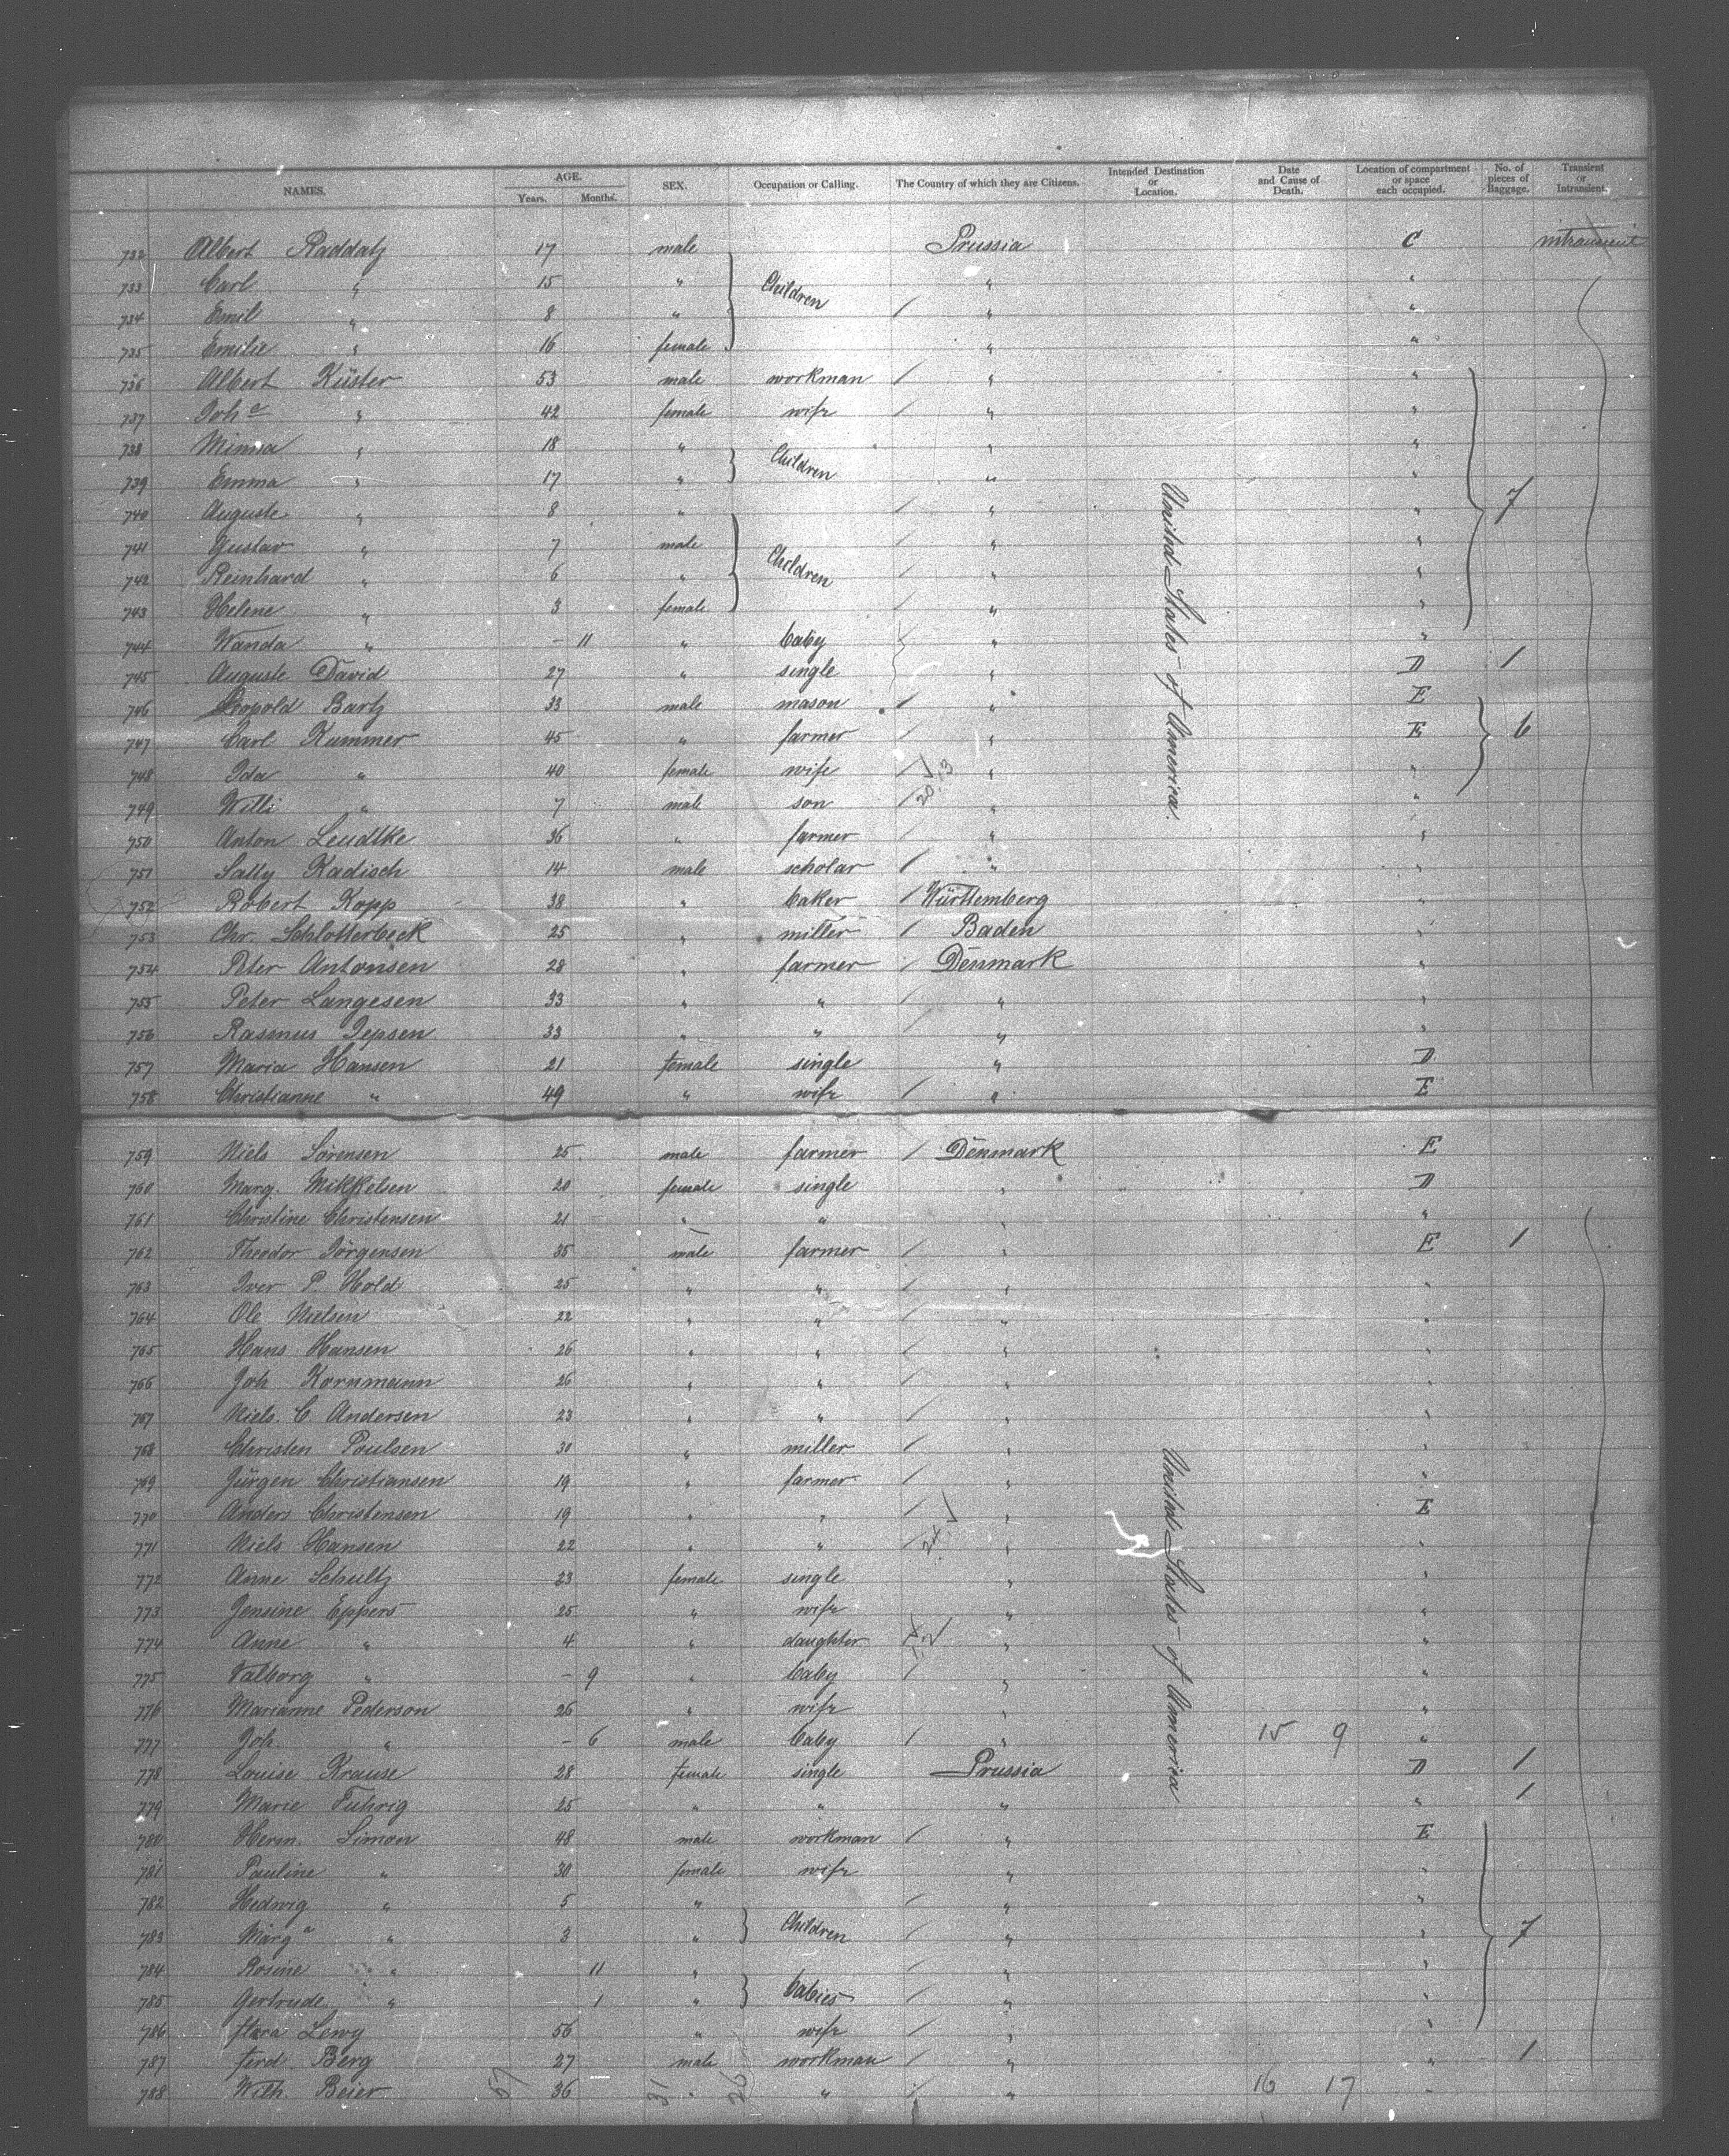 NAMES. AGE. Years. Months. SEX. Occupation or Calling. The Country of which they are Citizens. Intended Destination or Location. Date and Cause of Death. Location of compartment or space each occupied. No. of pieces of Baggage. Transient or Intransient.
732 Albert Raddatz 17 male Prussia C intransient
733 Carl " 15 " Children " "
734 Emil " 8 " " "
735 Emilie " 16 female " "
736 Albert Küster 53 male workman " "
737 Joh e " 42 female wife " "
738 Minna " 18 " Children " "
739 Emma " 17 " " "
740 Auguste " 8 " " " 7
741 Gustav " 7 male Children " "
742 Reinhard " 6 " " "
743 Helene " 3 female " "
744 Wanda " - 11 " baby " "
745 Auguste David 27 " single " D 1
746 Leopold Bartz 33 male mason " E
747 Carl Kummer 45 " farmer " E 6
748 Ida " 40 female wife " "
749 Willi " 7 male son " "
750 Anton Leudtke 36 " farmer " "
751 Sally Kadisch 14 male scholar " "
752 Robert Kopp 38 " baker Württemberg "
753 Chr. Schlotterbeck 25 " miller Baden "
754 Peter Antonsen 28 " farmer Denmark "
755 Peter Langesen 33 " " " "
756 Rasmus Jepsen 33 " " " "
757 Maria Hansen 21 female single " D
758 Christianne " 49 " wife " E
United States of America.
759 Niels Sörensen 25 male farmer Denmark E
760 Marg. Mikkelsen 20 female single " D
761 Christine Christensen 21 " " " "
762 Theodor Jörgensen 35 male farmer " E 1
763 Iver P. Hold 25 " " " "
764 Ole Nielsen 22 " " " "
765 Hans Hansen 26 " " " "
766 Joh Kornmann 26 " " " "
767 Niels C Andersen 23 " " " "
768 Christen Poulsen 30 " miller " "
769 Jürgen Christiansen 19 " farmer " "
770 Anders Christensen 19 " " " E
771 Niels Hansen 22 " " " "
772 Anne Schultz 23 female single " "
773 Jensine Eppers 25 " wife " "
774 Anne " 4 " daughter " "
775 Valborg " - 9 " baby " "
776 Marianne Pederson 26 " wife " "
777 Joh. " - 6 male baby " 15 9 "
778 Louise Krause 28 female single Prussia D 1
779 Marie Fuhrig 25 " " " " 1
780 Herm. Simon 48 male workman " E
781 Pauline " 30 female wife " "
782 Hedwig " 5 " " "
783 Marg a " 3 " Children " " 7
784 Rosine " 11 " " "
785 Gertrude " 1 " babies " "
786 flora Lewy 56 " wife " "
787 ferd. Berg 27 male workman " " 1
788 Wilh. Beier 36 " " " 16 17 "
United States of America